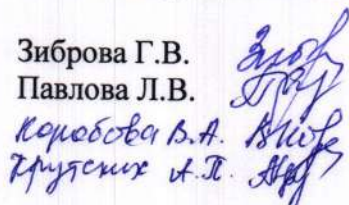 Зиброва Г.В.
Павлова Л.В.
Коробова В.А.
Крутских А.П.